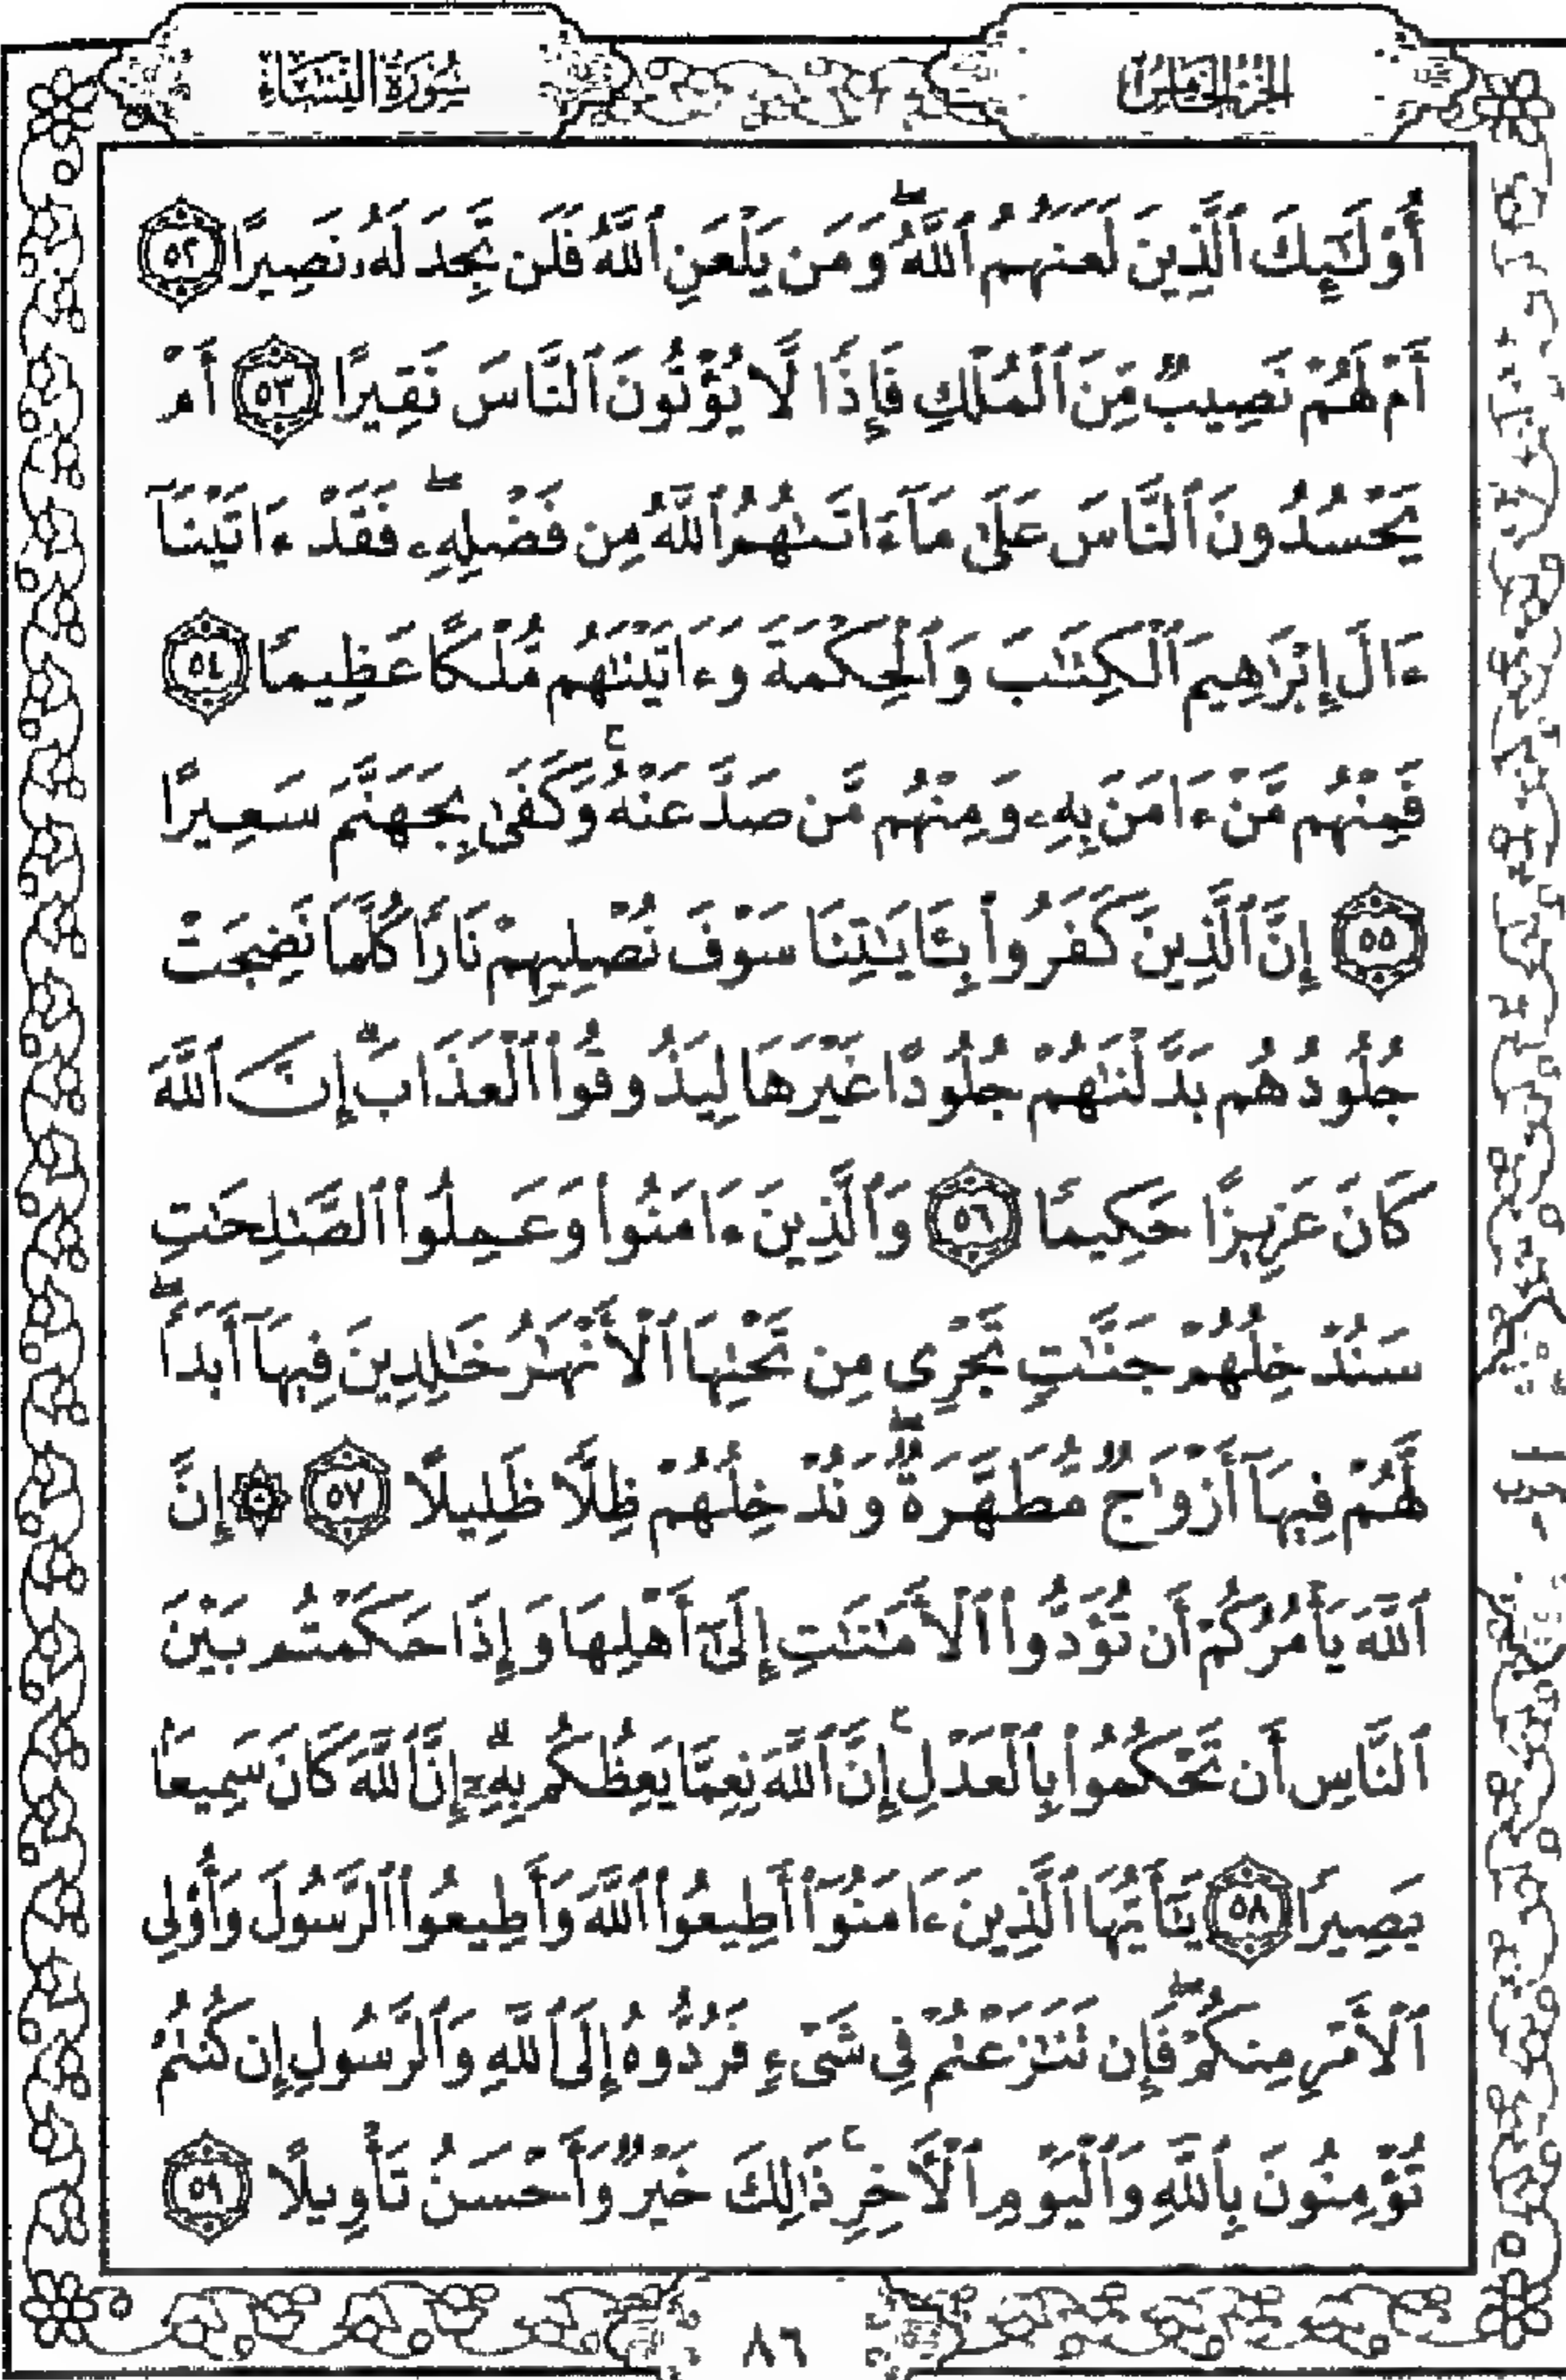 الجزء الخامس
سورة النساء
أُوْلَـٰٓئِكَ ٱلَّذِينَ لَعَنَهُمُ ٱللَّهُۖ وَمَن يَلْعَنِ ٱللَّهُ فَلَن تَجِدَ لَهُۥ نَصِيرًا ٥٢
أَمْ لَهُمْ نَصِيبٌ مِّنَ ٱلْمُلْكِ فَإِذًا لَّا يُؤْتُونَ ٱلنَّاسَ نَقِيرًا ٥٣ أَمْ
يَحْسُدُونَ ٱلنَّاسَ عَلَىٰ مَآ ءَاتَىٰهُمُ ٱللَّهُ مِن فَضْلِهِۦۖ فَقَدْ ءَاتَيْنَآ
ءَالَ إِبْرَٰهِيمَ ٱلْكِتَـٰبَ وَٱلْحِكْمَةَ وَءَاتَيْنَـٰهُم مُّلْكًا عَظِيمًا ٥٤
فَمِنْهُم مَّنْ ءَامَنَ بِهِۦ وَمِنْهُم مَّن صَدَّ عَنْهُۚ وَكَفَىٰ بِجَهَنَّمَ سَعِيرًا
٥٥ إِنَّ ٱلَّذِينَ كَفَرُوا۟ بِـَٔايَـٰتِنَا سَوْفَ نُصْلِيهِمْ نَارًا كُلَّمَا نَضِجَتْ
جُلُودُهُم بَدَّلْنَـٰهُمْ جُلُودًا غَيْرَهَا لِيَذُوقُوا۟ ٱلْعَذَابَۗ إِنَّ ٱللَّهَ
كَانَ عَزِيزًا حَكِيمًا ٥٦ وَٱلَّذِينَ ءَامَنُوا۟ وَعَمِلُوا۟ ٱلصَّـٰلِحَـٰتِ
سَنُدْخِلُهُمْ جَنَّـٰتٍ تَجْرِى مِن تَحْتِهَا ٱلْأَنْهَـٰرُ خَـٰلِدِينَ فِيهَآ أَبَدًاۖ
لَّهُمْ فِيهَآ أَزْوَٰجٌ مُّطَهَّرَةٌۖ وَنُدْخِلُهُمْ ظِلًّا ظَلِيلًا ٥٧ ۞ إِنَّ
ٱللَّهَ يَأْمُرُكُمْ أَن تُؤَدُّوا۟ ٱلْأَمَـٰنَـٰتِ إِلَىٰٓ أَهْلِهَا وَإِذَا حَكَمْتُم بَيْنَ
ٱلنَّاسِ أَن تَحْكُمُوا۟ بِٱلْعَدْلِۚ إِنَّ ٱللَّهَ نِعِمَّا يَعِظُكُم بِهِۦٓۗ إِنَّ ٱللَّهَ كَانَ سَمِيعًۢا
بَصِيرًا ٥٨ يَـٰٓأَيُّهَا ٱلَّذِينَ ءَامَنُوٓا۟ أَطِيعُوا۟ ٱللَّهَ وَأَطِيعُوا۟ ٱلرَّسُولَ وَأُوْلِى
ٱلْأَمْرِ مِنكُمْۖ فَإِن تَنَـٰزَعْتُمْ فِى شَىْءٍ فَرُدُّوهُ إِلَى ٱللَّهِ وَٱلرَّسُولِ إِن كُنتُمْ
تُؤْمِنُونَ بِٱللَّهِ وَٱلْيَوْمِ ٱلْـَٔاخِرِۚ ذَٰلِكَ خَيْرٌ وَأَحْسَنُ تَأْوِيلًا ٥٩
٨٦